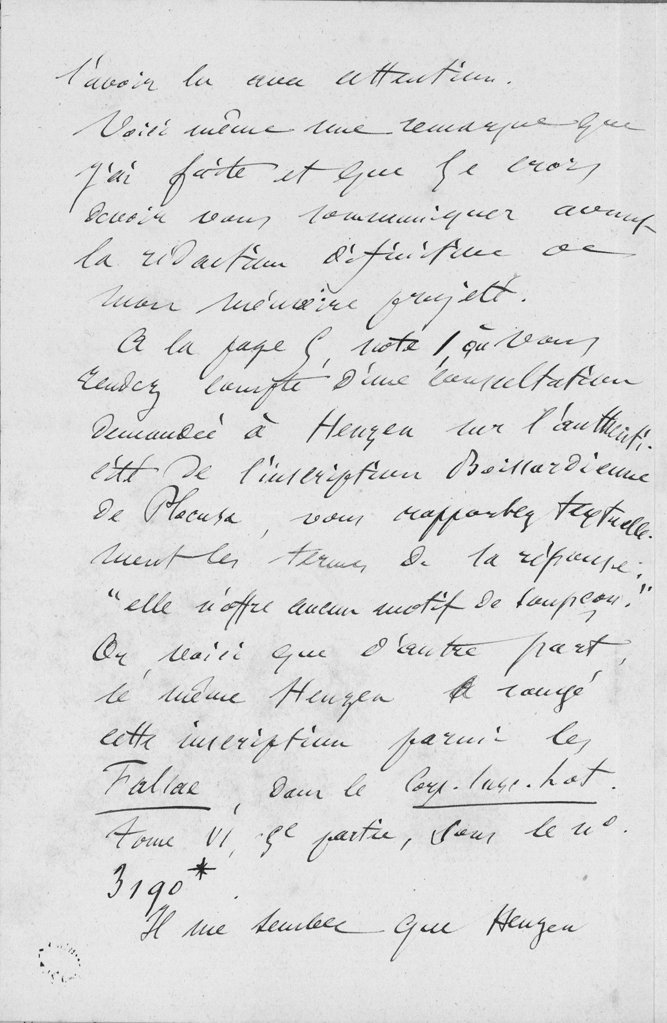 l'avoir lu avec attention.
Voici même une remarque que
j'ai faite et que je crois
devoir vous communiquer avant
la rédaction définitive de
mon mémoire projeté.
A la page 5, note 1, où vous
rendez compte d'une consultation
demandée à Henzen sur l'authenti-
cité de l'inscription Boissardienne
de Placusa, vous rapportez textuelle-
ment les termes de la réponse:
"elle n'offre aucun motif de soupçon."
Or, voici que d'autre part,
le même Henzen a rangé
cette inscription parmi les
Falsae, dans le Corp. Insc. Lat.
tome VI, 5e partie, sous le no.
3190*
Il me semble que Henzen